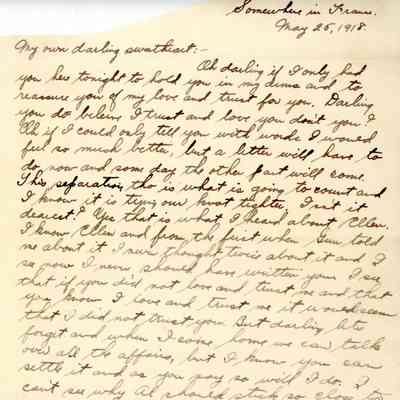 Somewhere in France.
May 25, 1918.
My own darling sweetheart:-
Oh darling if I only had
you here tonight to hold you in my arms and to
reassure you of my love and trust for you. Darling
you do believe I trust and love you don't you?
Oh if I could only tell you with words I would
feel so much better, but a letter will have to
do now and some day the other part will come.
This separation tho is what is going to count and
I know it is tying our knot tighter, Isn't it
dearest? Yes that is what I heard about Ellen.
I know Ellen and from the first when told
me about it I never thought twice about it and I
see now I never should have written you. I see
that if you did not love and trust me and that
you know I love and trust you it would seem
that I did not trust you. But darling lets
forget and when I come home we can talk
over all the affairs, but I know you can
settle it and as you say so will I do. I
can't see why Al should stick so close to